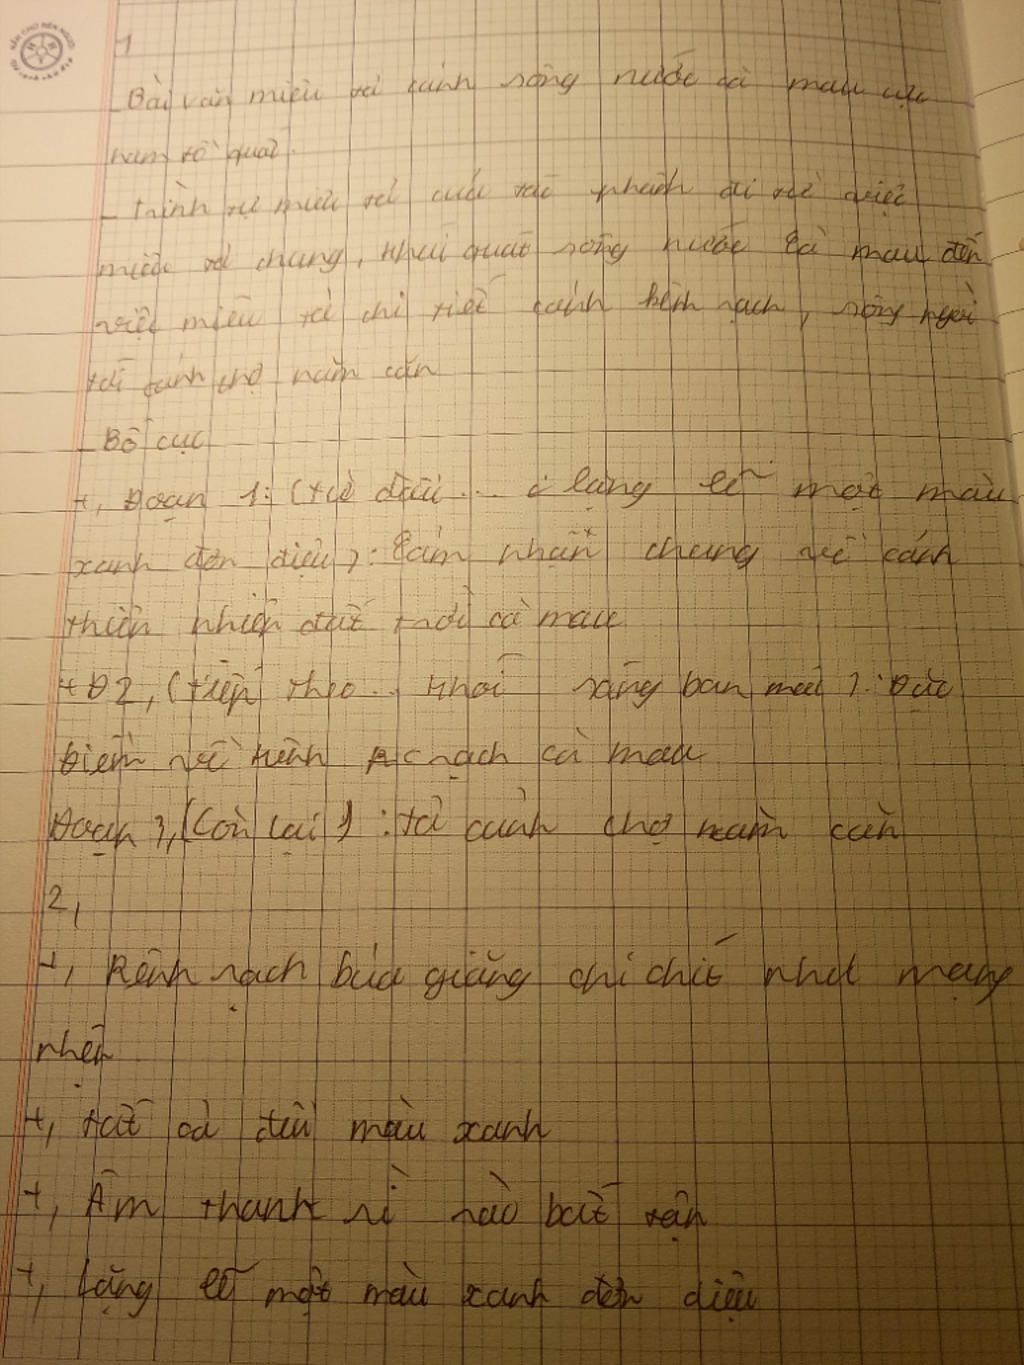 1
Bài văn miêu tả cảnh sông nước cà mau cực
nam tổ quốc.
- trình tự miêu tả của tác phẩm đi từ việc
miêu tả chung, khái quát sông nước Cà mau đến
việc miêu tả chi tiết cảnh kênh rạch, sông ngòi
tới cảnh chợ năm căn
- Bố cục
+, Đoạn 1: (từ đầu... lặng lẽ một màu
xanh đơn điệu): Cảm nhận chung về cảnh
thiên nhiên đất mới cà mau
+ Đ2, (tiếp theo... khói sóng ban mai): Đặc
điểm về kênh rạch cà mau
Đoạn 3, (Còn lại): tả cảnh chợ năm căn
2,
+, Kênh rạch bủa giăng chi chít như mạng
nhện
+, tất cả đều màu xanh
+, Âm thanh rì rào bất tận
+, Lặng lẽ một màu xanh đơn điệu